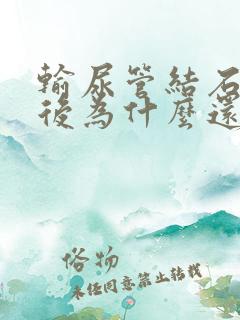 輸尿管結石
後為什麼還
俗物
未经同意禁止转载